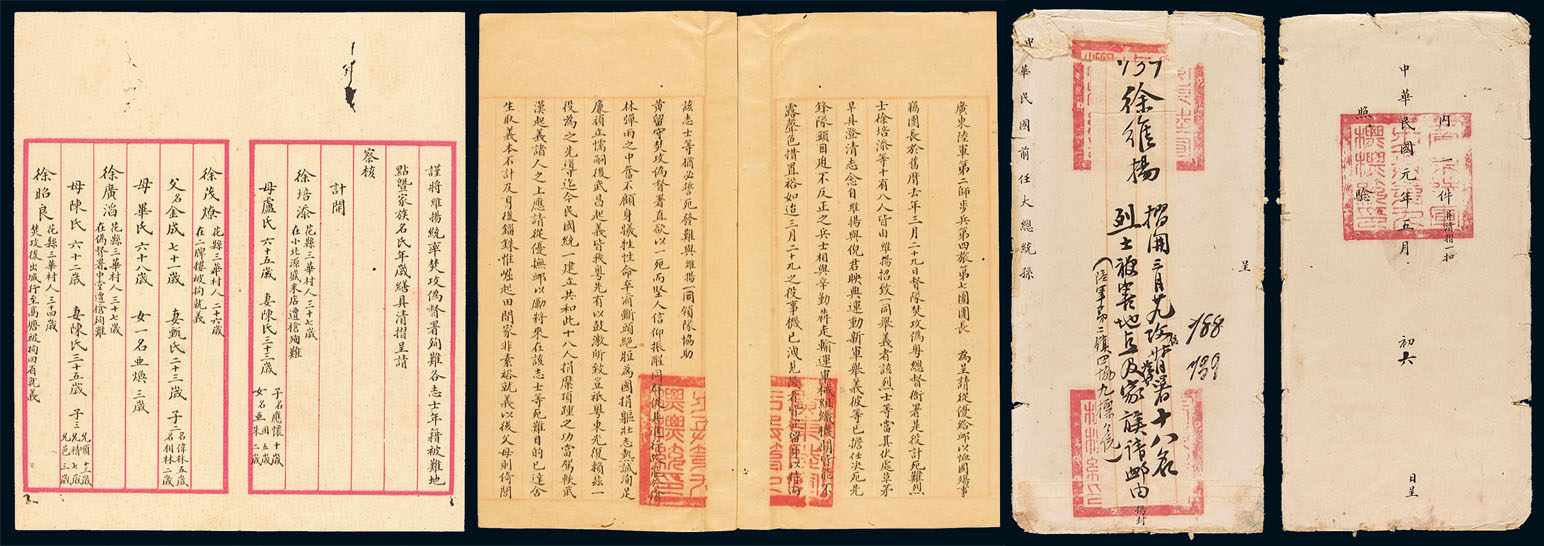 謹將維揚統率焚攻偽督署殉難各志士年籍被難地
點暨家族名氏年歲繕具清摺呈請
察核
計開
徐培添 花縣三華村人三十七歲
在小北源盛米店遭槍殉難
母盧氏六十五歲 妻陳氏三十三歲
子名應懷十歲
女名亞朱二歲
徐茂燎 花縣三華村人二十六歲
在二牌樓被拘就義
父名金成七十一歲 妻甄氏二十三歲 子二
名偉林五歲
名相林二歲
母畢氏六十八歲 女一名亞煥三歲
徐廣滔 花縣三華村人三十七歲
在偽督署中堂遭槍殉難
母陳氏六十二歲 妻陳氏三十五歲 子三
徐昭良 花縣三華村人三十四歲
焚攻後出城行至高塘被拘回省就義
廣東陸軍第二師步兵第四旅第七團團長 為呈請從優給邮以恤國殤事
竊團長於舊曆去年三月二十九日督隊焚攻偽粵總督衙署是役計死難烈
士徐培添等十有八人皆由維揚招致一同舉義者該烈士等當其伏處草茅
早具澄清志念自維揚與倪君映典運動新軍舉義彼等已擔任決死先
鋒隊頭目迫不反正之兵士相與辛勤犇走輸運軍械組織機關皆能不
露聲色措置裕如迨三月二十九之役事機已洩
該志士等猶必誓死發難與維揚一同領隊協助
黃留守焚攻偽督署直欲以一死而堅人信仰振醒同群
林彈雨之中奮不顧身犧牲性命卒爾斷頭絕脰為國捐軀壯志熱誠洵足
廉頑立懦嗣後武昌起義皆我粵先有以鼓激所致豈祇粵東光復賴茲一
役為之先導迄今民國統一建立共和此十八人捐糜頂踵之功當駕軼武
漢起義諸人之上應請從優撫邮以勵將來在該志士等死難目的已達舍
生取義本不計及身後錙銖惟崛起田間家非素裕就義以後父母則倚閭
呈
中華民國前任大總統孫
737
徐維揚 摺開三月廿九攻督署十八名
烈士被害地点及家族請邮由
(陸軍第二鎮四協九標長)
188
199
揚封
內一件 附清摺一扣
中華民國元年五月 初六 日呈
照驗